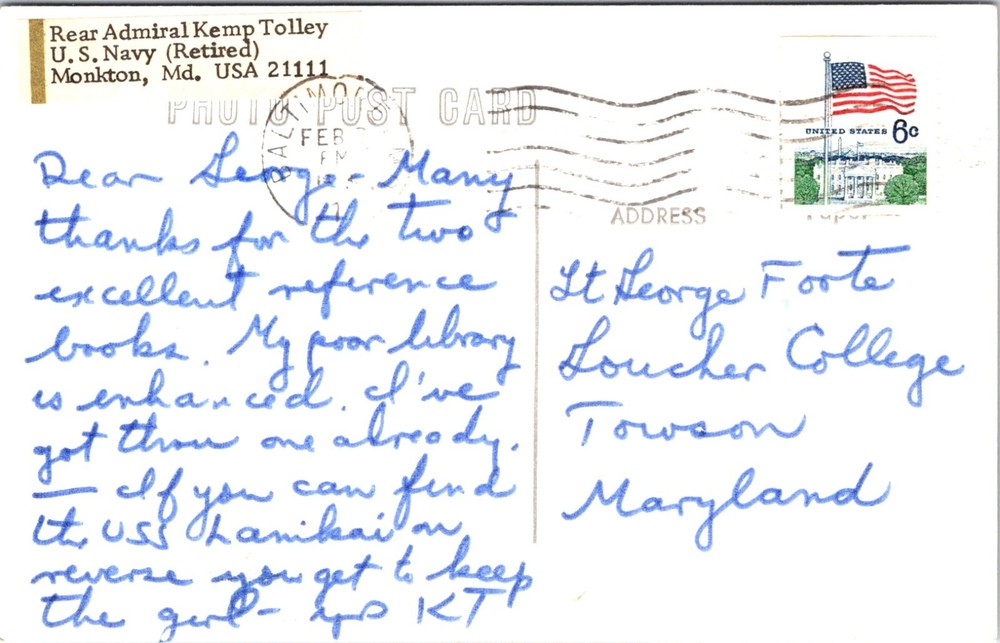 Rear Admiral Kemp Tolley
U. S. Navy (Retired)
Monkton, Md. USA 21111
PHOTO POST CARD
BALTIMORE
FEB
PM
UNITED STATES 6c
ADDRESS
Dear George - Many
thanks for the two
excellent reference
books. My poor library
is enhanced. I've
got thru one already.
— If you can find
the USS Lanikai on
reverse you get to keep
the girl - yrs KT
Lt George Forte
Goucher College
Towson
Maryland